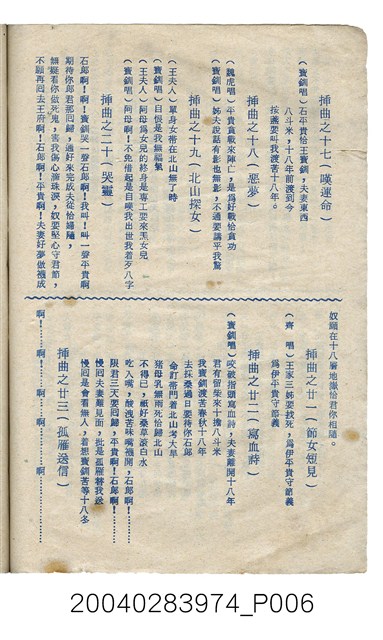 插曲之十七(嘆運命)
(寶釧唱)石平貴恰王寶釧,夫妻東西
八斗米,十八年前渡到今
按蓋要叫我渡苦十八年。
插曲之十八(惡夢)
(魏虎唱)平貴貪戰來陣亡,是爲好戰恰貪功
(寶釧唱)姊夫說話有影也無影,不通要講乎我驚
插曲之十九(北山探女)
(王夫人)單身女帶在北山無了時
(寶釧唱)自恨是我無福氣
(王夫人)阿母爲兒的終身是專工要來罵女兒
(寶釧唱)阿母啊!不免惜起是自嘆我出世我着歹八字
插曲之二十(哭靈)
石郎啊!啊!寶釧哭一聲石郎!我叫!叫一聲平貴啊
期待你郎君那囘歸,過好來完成夫從恰婦隨,
無疑看你做死鬼,害我傷心膝珠淚,奴要堅心守君節,
不願再囘去王府啊!石郎啊!平貴啊!夫妻好夢做襪成
奴願在十八層地獄恰君你相隨。
插曲之廿一(節女短見)
(齊 唱)王家三姊要找死,爲伊平貴守節義
爲伊平貴守節義
插曲之廿二(寫血詩)
(寶釧唱)咬破指頭寫血詩,夫妻離開十八年
君有留柴來十擔八斗米
我寶釧渡苦春秋十八年
去採桑過日要待你石郎
命釘帶門着北山考大旱
豬母乳無雨死恰歸北山
不得已,紙好桑草滾白水
吃入嘴,酸洩苦味嘴襪開,!石郎啊!
限君三天要囘歸,平貴啊!石郎啊!
慢囘夫妻難見面,批是孤雁替我送
慢囘是會看無人,着想寶釧苦等十八冬
插曲之廿三(孤雁送信)
啊!………啊!………啊!………啊!………
20040283974_P006